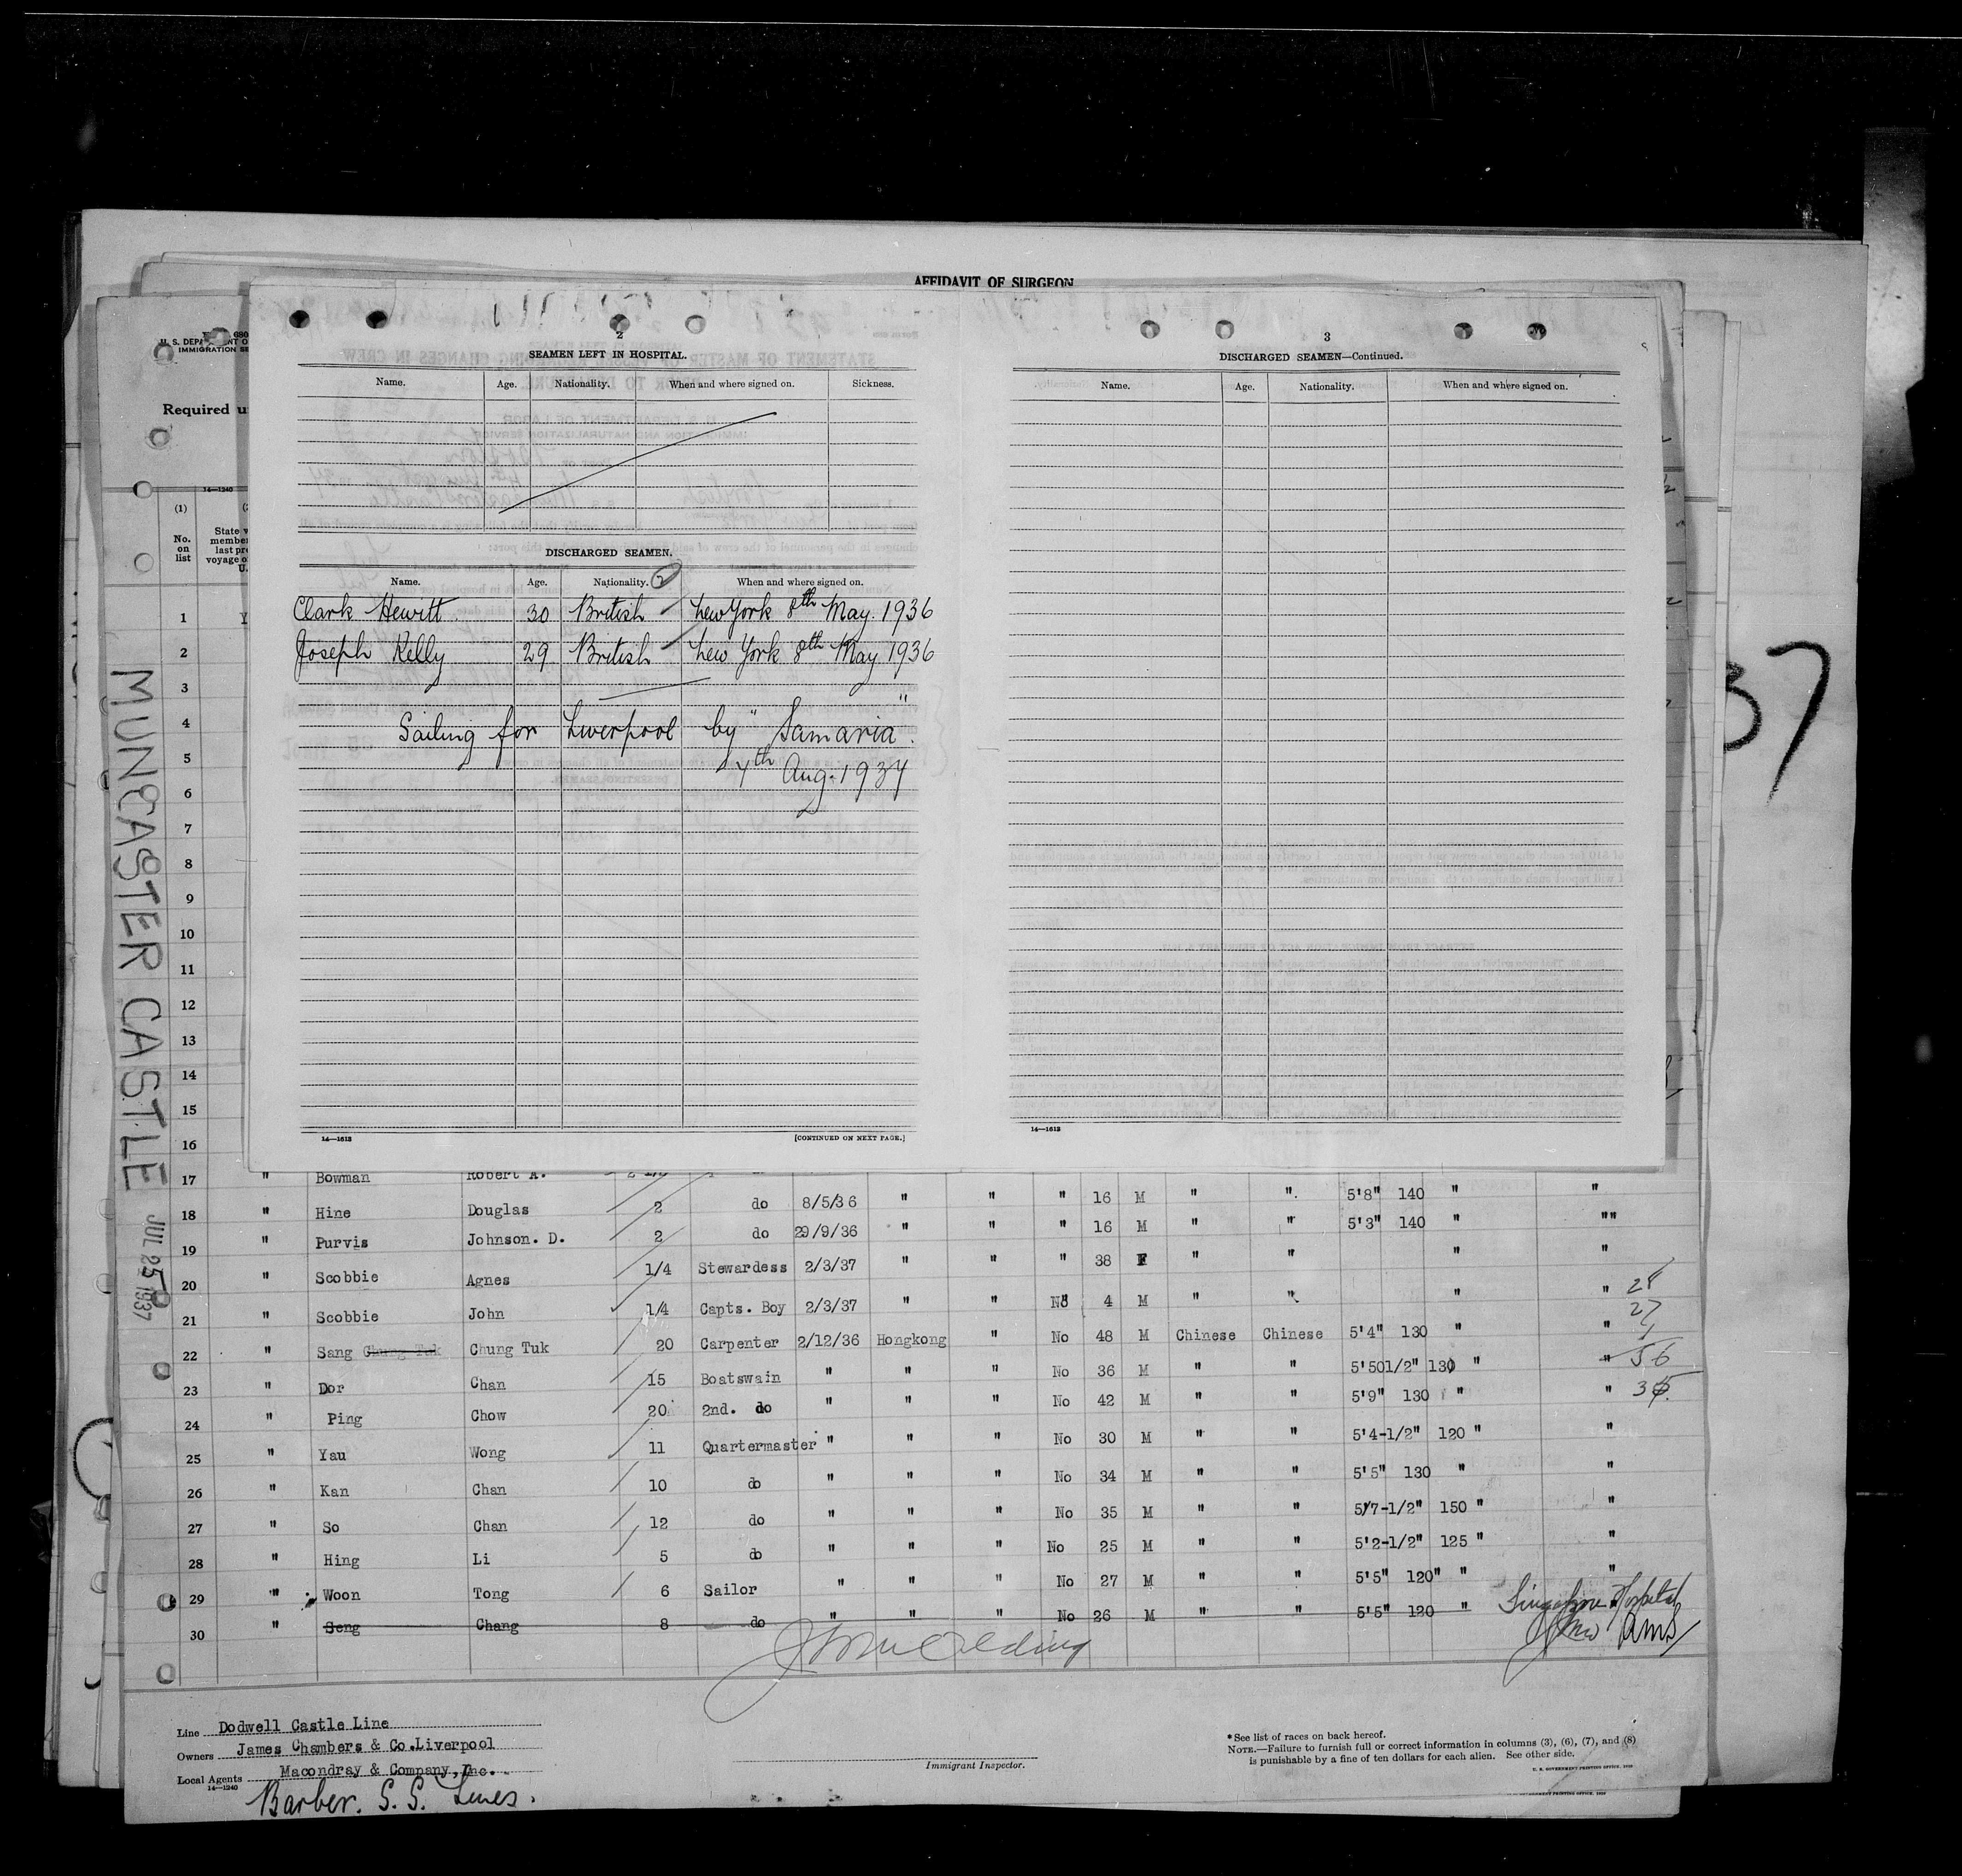 AFFIDAVIT OF SURGEON
2
SEAMEN LEFT IN HOSPITAL.
Name. Age. Nationality. When and where signed on. Sickness.
DISCHARGED SEAMEN.
Name. Age. Nationality. 2 When and where signed on.
Clark Hewitt. 30 British New York 8th May. 1936
Joseph Kelly 29 British New York 8th May. 1936
Sailing for Liverpool by "Samaria".
7th Aug. 1937
14—1613 [CONTINUED ON NEXT PAGE.]
3
DISCHARGED SEAMEN—Continued.
Name. Age. Nationality. When and where signed on.
14—1613
37
680
U. S. DEPA
IMMIGRATION SE
Required u
14—1240
(1)
No. on list
State w
member
last pre
voyage o
U.
MUNCASTER CASTLE
JUL 25 1937
1 Y
2
3
4
5
6
7
8
9
10
11
12
13
14
15
16
17 " Bowman Robert A.
18 " Hine Douglas 2 do 8/5/36 " " " 16 M " ". 5'8" 140 " "
19 " Purvis Johnson. D. 2 do 29/9/36 " " " 16 M " " 5'3" 140 " ""
20 " Scobbie Agnes 1/4 Stewardess 2/3/37 " " " 38 F " " " "
21 " Scobbie John 1/4 Capts. Boy 2/3/37 " " No 4 M " " " "
22 " Sang Chung Tuk Chung Tuk 20 Carpenter 2/12/36 Hongkong " No 48 M Chinese Chinese 5'4" 130 " "
23 " Dor Chan 15 Boatswain " " " No 36 M " " 5'501/2" 130 " "
24 " Ping Chow 20 2nd. do " " " No 42 M " " 5'9" 130 " "
25 " Yau Wong 11 Quartermaster " " " No 30 M " " 5'4-1/2" 120 " "
26 " Kan Chan 10 do " " " No 34 M " " 5'5" 130 " "
27 " So Chan 12 do " " " No 35 M " " 5'7-1/2" 150 " "
28 " Hing Li 5 do " " " No 25 M " " 5'2-1/2" 125 " "
29 " Woon Tong 6 Sailor " " " No 27 M " " 5'5" 120" " "
30 " Seng Chang 8 do " " " No 26 M " " 5'5" 120 " Singapore Hospital
27
56
Line Dodwell Castle Line
Owners James Chambers & Co.Liverpool
Local Agents Macondray & Company, Inc.
14—1240
Barber. S. S. Lines.
Immigrant Inspector.
* See list of races on back hereof.
NOTE.—Failure to furnish full or correct information in columns (3), (6), (7), and (8)
is punishable by a fine of ten dollars for each alien. See other side.
U. S. GOVERNMENT PRINTING OFFICE